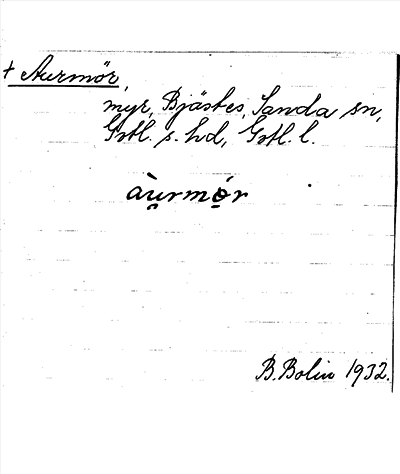 + Aurmör,
myr, Bjästes, Sanda sn,
Gotl. s. hd, Gotl. l.
àu̯rmó̯r
B. Bolin 1932.